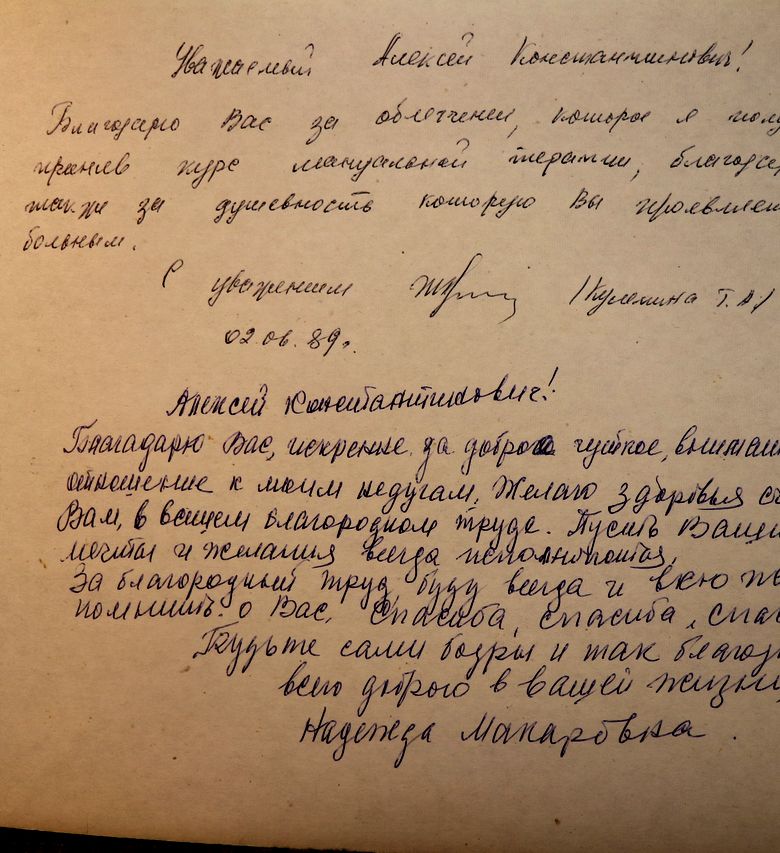 Уважаемый Алексей Константинович!
Благодарю Вас за облегчение, которое я полу
приняв курс мануальной терапии, благодар
также за душевность которую Вы проявляет
больным.
С уважением /Кулемина Т.А/
02.06.89г.
Алексей Константинович!
Благадарю Вас, искренне за доброе чуткое, внимат
отношение к моим недугам. Желаю здоровья сч
Вам, в вашем благородном труде. Пусть Ваши
мечты и желания всегда исполняются.
За благородный труд буду всегда и всю жи
помнить о Вас. Спасиба, спасиба, спас
Будьте сами бодры и так благод
всего доброго в вашей жизни
Надежда Макаровна.